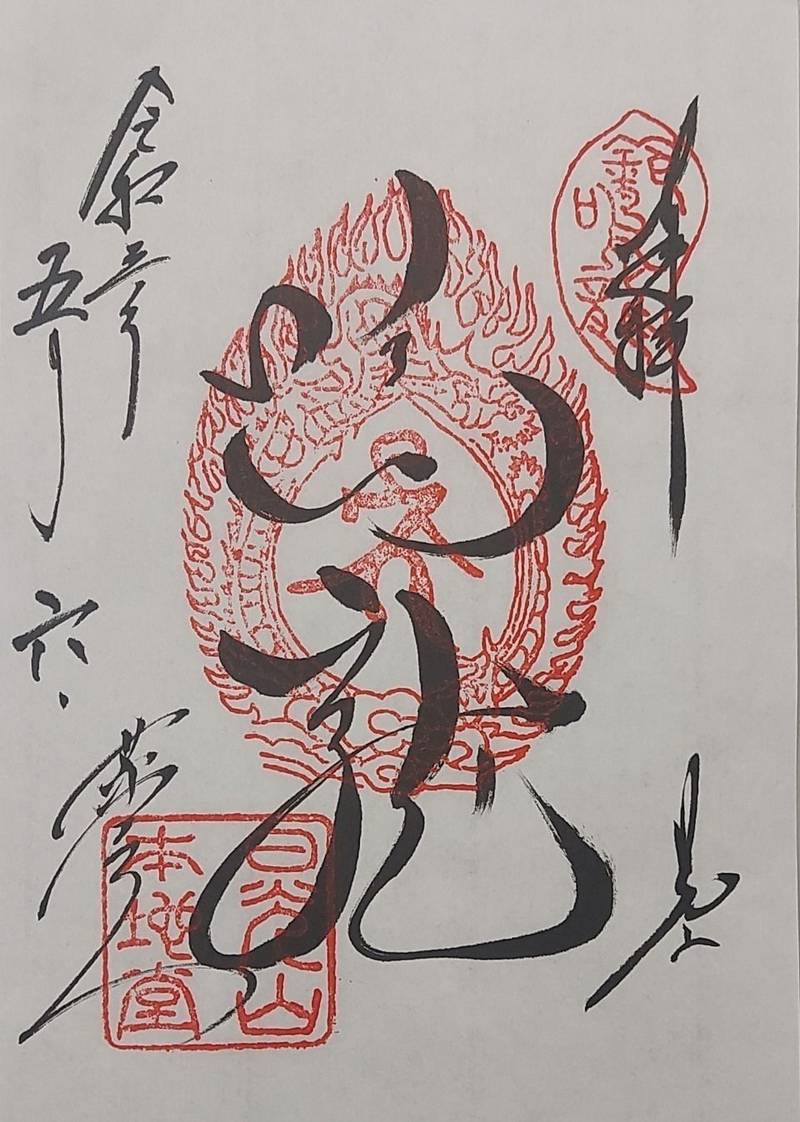 奉拝
日光
鳴龍
令和三年
五月六日
日光山
本地堂